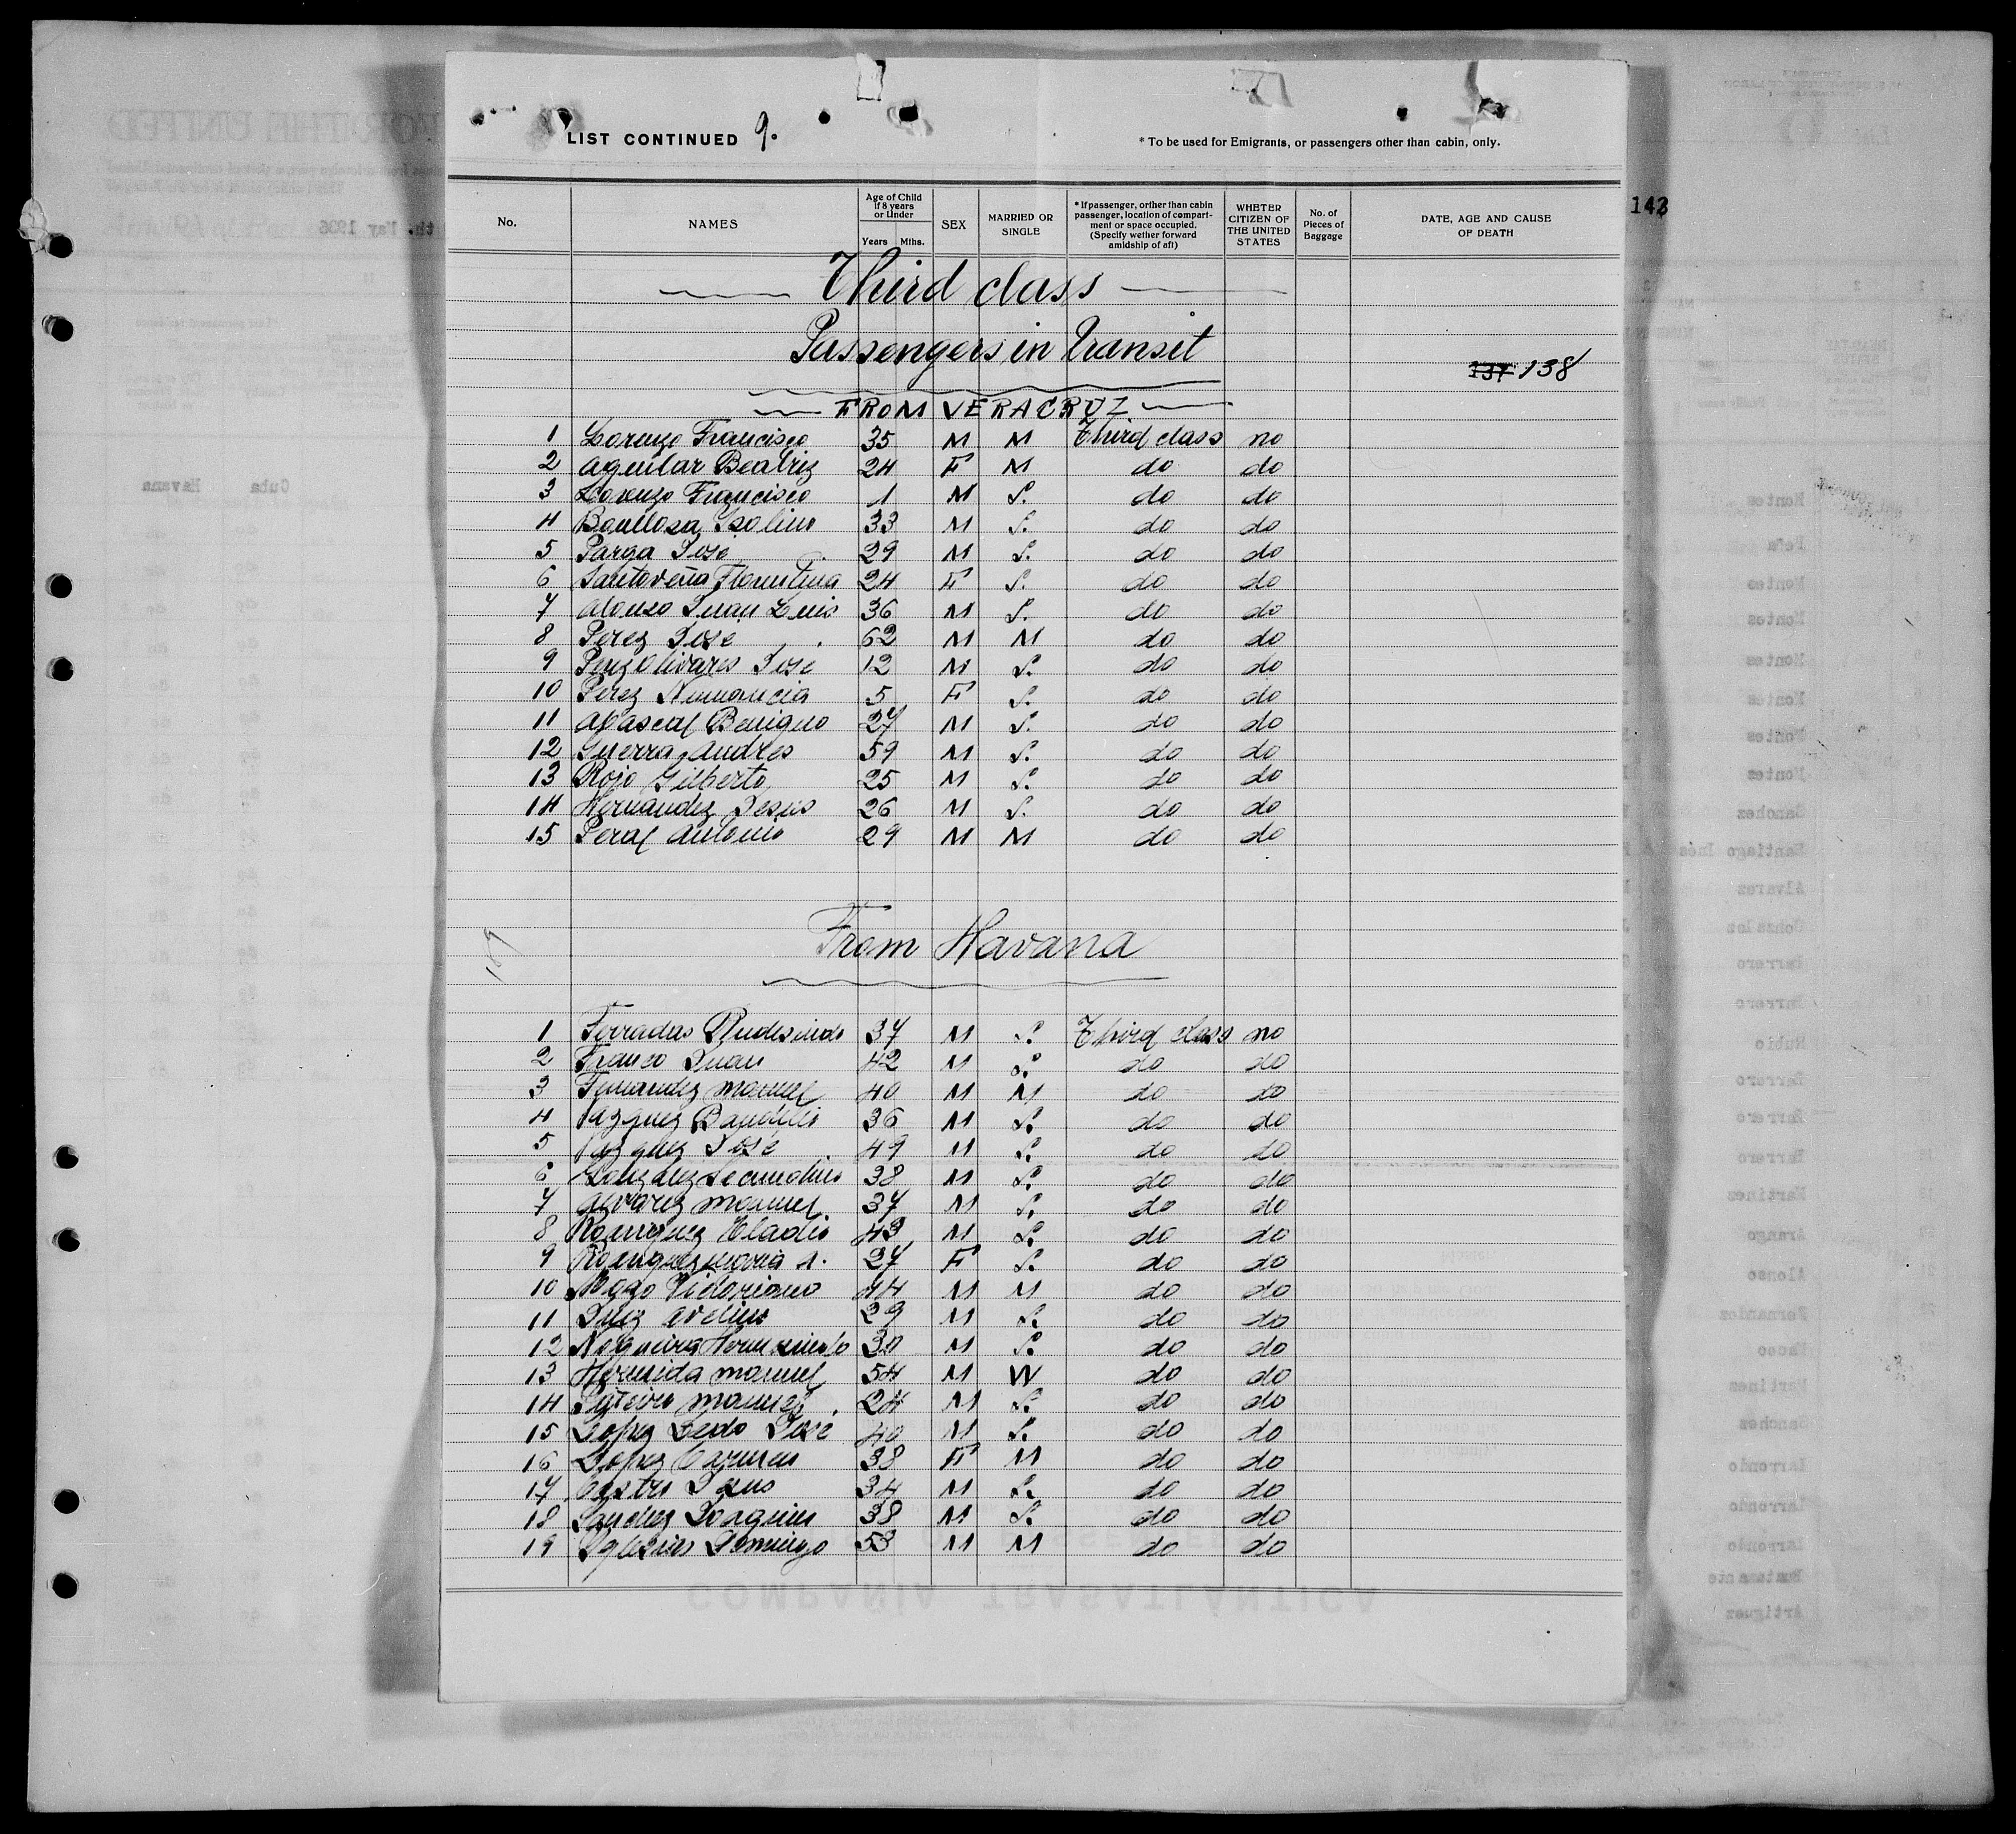 LIST CONTINUED 9.
* To be used for Emigrants, or passengers other than cabin, only.
143
No. NAMES Age of Child if 8 years or Under Years Mths. SEX MARRIED OR SINGLE * If passenger, orther than cabin passenger, location of compartment or space occupied. (Specify wether forward amidship of aft) WHETER CITIZEN OF THE UNITED STATES No. of Pieces of Baggage DATE, AGE AND CAUSE OF DEATH
Third class
Passengers in transit
137 138
FROM VERACRUZ
1 Lorenzo Francisco 35 M M Third class no
2 Aguilar Beatriz 24 F M do do
3 Lorenzo Francisco 1 M S. do do
4 Boullosa Isolino 33 M S. do do
5 Parga José 29 M S. do do
6 Santoveña Florentina 24 F S. do do
7 Alonso Juan Luis 36 M S. do do
8 Perez José 62 M M do do
9 Perez Olivares José 12 M S. do do
10 Perez Numancia 5 F S. do do
11 Abascal Benigno 27 M S. do do
12 Guerra Andres 59 M S. do do
13 Rojo Gilberto 25 M S. do do
14 Hernandez Jesus 26 M S. do do
15 Peral Antonio 29 M M do do
From Havana
1 Ferradas Rudesindo 37 M S. Third class no
2 Franco Juan 42 M S. do do
3 Fernandez Manuel 40 M M do do
4 Vazquez Baudilio 36 M S. do do
5 Vazquez José 49 M S. do do
6 Gonzalez Secundino 38 M S. do do
7 Alvarez Manuel 37 M S. do do
8 Rodriguez Eladio 43 M S. do do
9 Rodriguez Maria A. 27 F S. do do
10 Victoriano 44 M M do do
11 Avelino 29 M S. do do
12 Nogueira 30 M S. do do
13 Hermida Manuel 54 M W do do
14 Manuel 24 M S. do do
15 Lopez Ledo José 40 M S. do do
16 Lopez Carmen 38 F M do do
17 Castro Jesus 34 M S. do do
18 Sanchez Joaquin 38 M S. do do
19 Iglesias Domingo 53 M M do do
COMPAÑÍA TRASATLÁNTICA